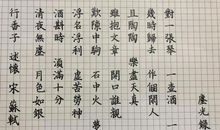 行香子 述懷 宋 蘇軾
清夜無塵 月色如銀
酒斟時 須滿十分
浮名浮利 虛苦勞神
歎隙中駒 石中火 夢
雖抱文章 開口誰親
且陶陶 樂盡天真
幾時歸去 作個閒人
對一張琴 一壺酒 一
塵光錄